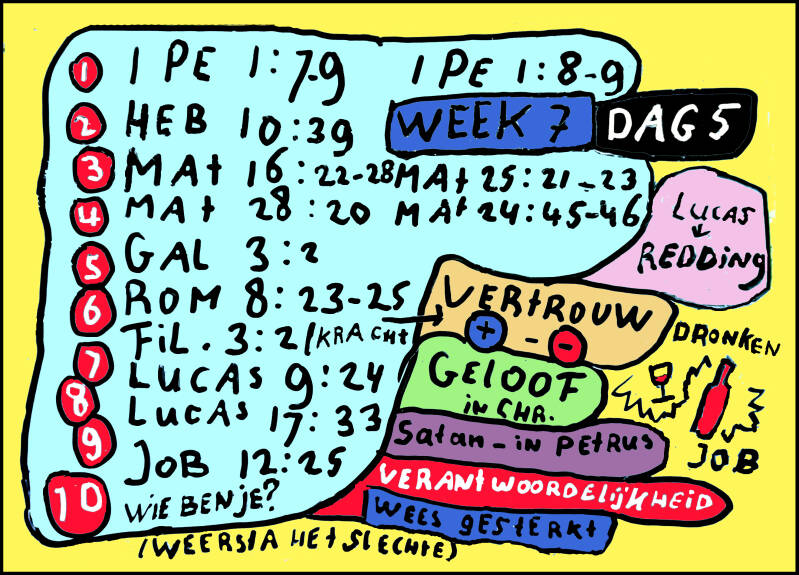 1 1 PE 1:7-9 1 PE 1:8-9
2 HEB 10:39
WEEK 7 DAG 5
3 MAt 16:22-28 MAt 25:21-23
4 MAt 28:20 MAt 24:45-46
LUCAS
REDDiNg
5 GAL 3:2
6 ROM 8:23-25
FiL. 3:21/KRACHt
7 LUCAS 9:24
8 LUCAS 17:33
9 JOB 12:25
10 WiE BEN JE?
(WEERSTA HET SLECHTE)
VERtROUW
+ - -
GELOOF
iN CHR.
Satan-in PETRUS
VERANTWOORDELijKHEiD
WEES gESTERKt
DRONKEN
JOB